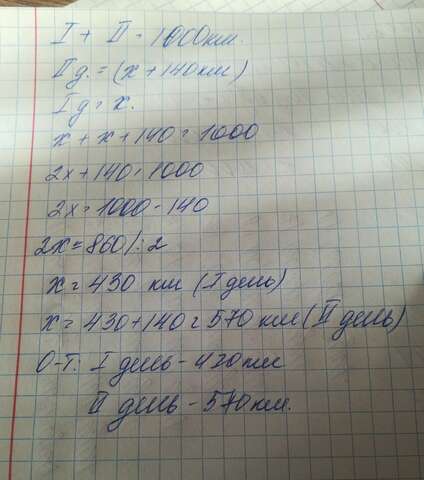 I + II = 1000км.
II д. = (x + 140км)
I д = x.
x + x + 140 = 1000
2x + 140 = 1000
2x = 1000 - 140
2x = 860 /: 2
x = 430 км (I день)
x = 430 + 140 = 570 км (II день)
О-т: I день - 430 км
II день - 570 км.